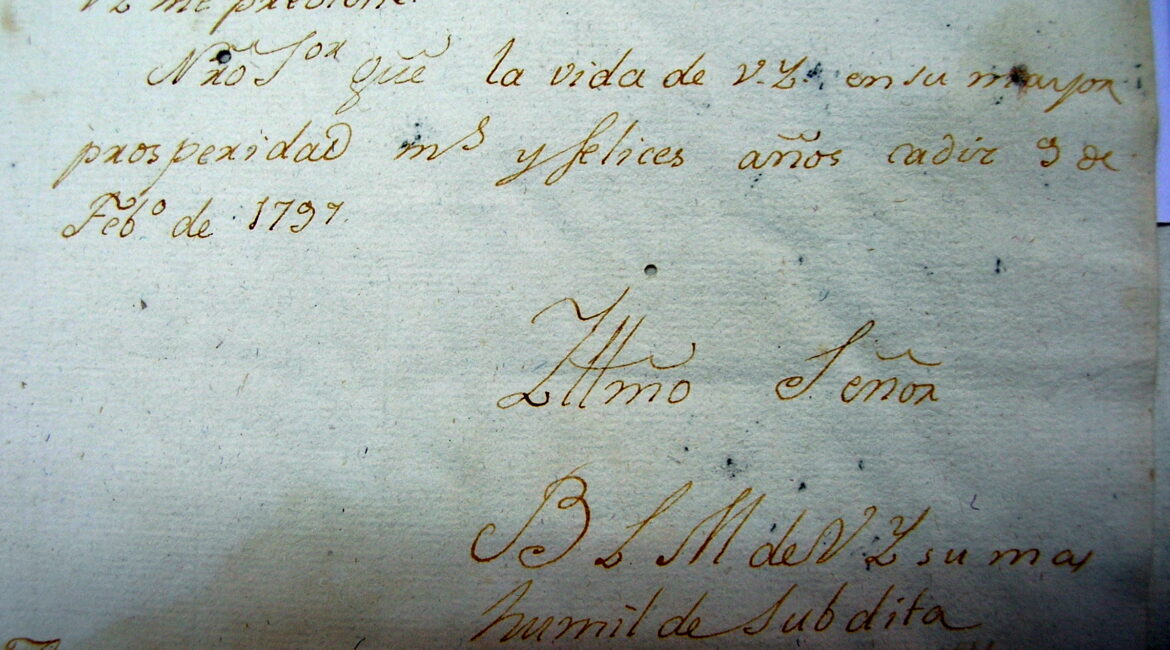 Nro Sor gue la vida de V.Y. en su mayor
prosperidad ms y felices años cadiz 9 de
Febo de 1797
Yltmo Señor
B L M de V Y su mas
humilde subdita